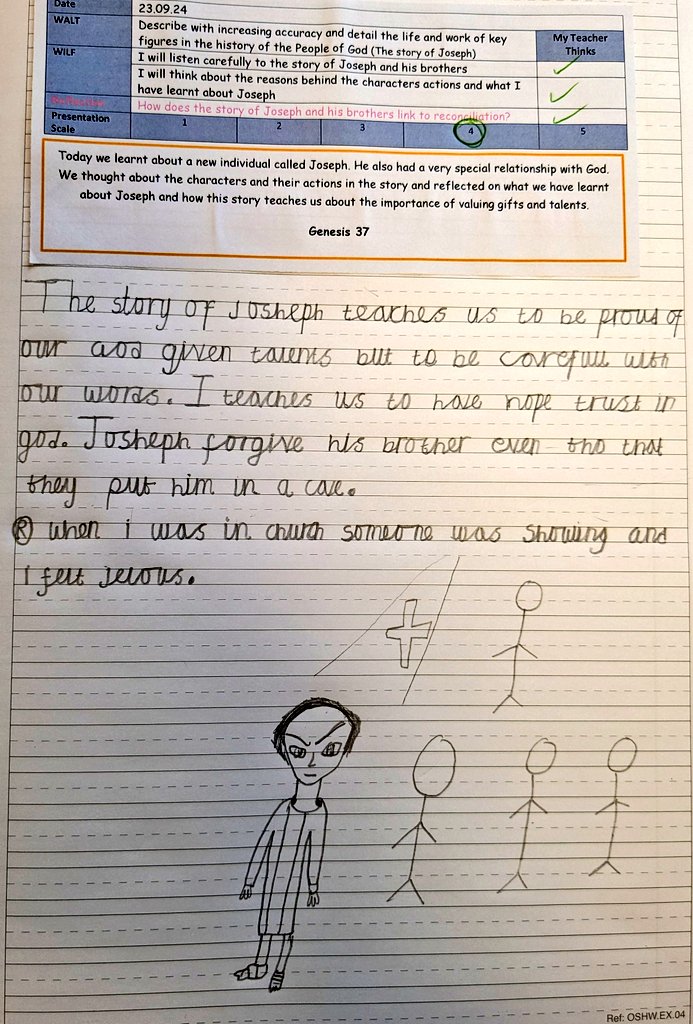 Date 23.09.24
WALT Describe with increasing accuracy and detail the life and work of key
figures in the history of the People of God (The story of Joseph)
My Teacher
Thinks
WILF I will listen carefully to the story of Joseph and his brothers
I will think about the reasons behind the characters actions and what I
have learnt about Joseph
How does the story of Joseph and his brothers link to reconciliation?
Presentation
Scale
1 2 3 4 5
Today we learnt about a new individual called Joseph. He also had a very special relationship with God.
We thought about the characters and their actions in the story and reflected on what we have learnt
about Joseph and how this story teaches us about the importance of valuing gifts and talents.
Genesis 37
The story of Josheph teaches us to be proud of
our god given talents but to be carefull with
our words. I teaches us to have hope trust in
god. Josheph forgive his brother even tho that
they put him in a cave.
R when i was in church someone was showing and
I felt jelous.
Ref: OSHW.EX.04